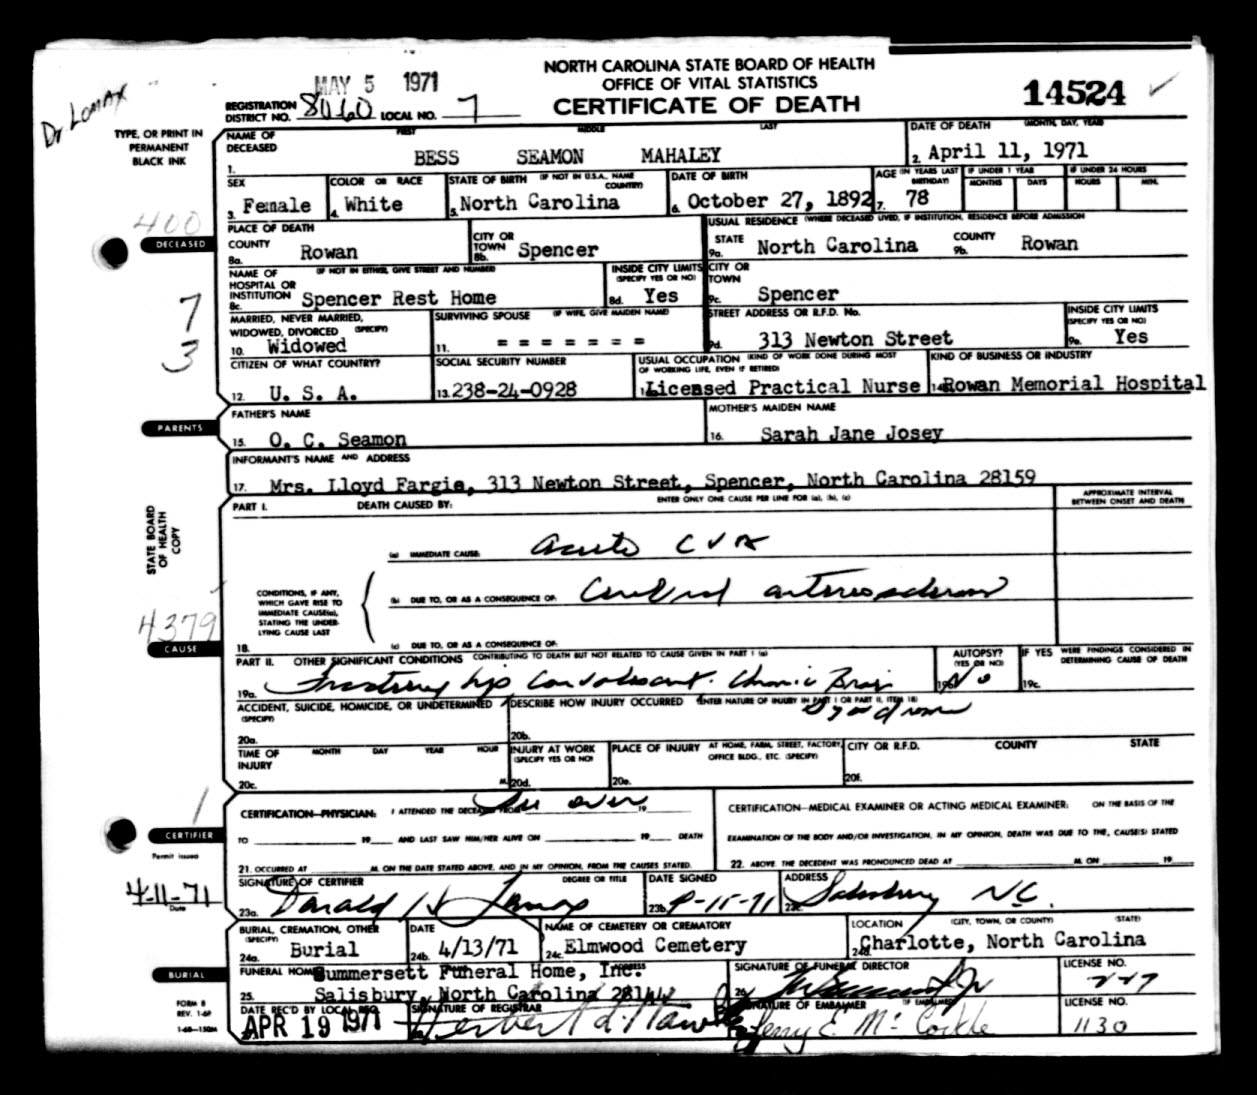 MAY 5 1971
NORTH CAROLINA STATE BOARD OF HEALTH
OFFICE OF VITAL STATISTICS
CERTIFICATE OF DEATH
14524
Dr Lomax
REGISTRATION DISTRICT NO. 8060 LOCAL NO. 7
TYPE, OR PRINT IN
PERMANENT
BLACK INK
NAME OF DECEASED FIRST MIDDLE LAST
1. BESS SEAMON MAHALEY
DATE OF DEATH (MONTH, DAY, YEAR)
2. April 11, 1971
SEX
3. Female
COLOR OR RACE
4. White
STATE OF BIRTH (IF NOT IN U.S.A., NAME COUNTRY)
5. North Carolina
DATE OF BIRTH
6. October 27, 1892
AGE (IN YEARS LAST BIRTHDAY)
7. 78
IF UNDER 1 YEAR
MONTHS DAYS
IF UNDER 24 HOURS
HOURS MIN.
400
DECEASED
PLACE OF DEATH
COUNTY
8a. Rowan
CITY OR TOWN
8b. Spencer
USUAL RESIDENCE (WHERE DECEASED LIVED, IF INSTITUTION, RESIDENCE BEFORE ADMISSION
STATE
9a. North Carolina
COUNTY
9b. Rowan
NAME OF HOSPITAL OR INSTITUTION (IF NOT IN EITHER, GIVE STREET AND NUMBER)
8c. Spencer Rest Home
INSIDE CITY LIMITS (SPECIFY YES OR NO)
8d. Yes
CITY OR TOWN
9c. Spencer
7
3
MARRIED, NEVER MARRIED, WIDOWED, DIVORCED (SPECIFY)
10. Widowed
SURVIVING SPOUSE (IF WIFE, GIVE MAIDEN NAME)
11. = = = = = = =
STREET ADDRESS OR R.F.D. No.
9d. 313 Newton Street
INSIDE CITY LIMITS (SPECIFY YES OR NO)
9e. Yes
CITIZEN OF WHAT COUNTRY?
12. U. S. A.
SOCIAL SECURITY NUMBER
13. 238-24-0928
USUAL OCCUPATION (KIND OF WORK DONE DURING MOST OF WORKING LIFE, EVEN IF RETIRED)
Licensed Practical Nurse
KIND OF BUSINESS OR INDUSTRY
Rowan Memorial Hospital
PARENTS
FATHER'S NAME
15. O. C. Seamon
MOTHER'S MAIDEN NAME
16. Sarah Jane Josey
INFORMANT'S NAME AND ADDRESS
17. Mrs. Lloyd Fargie, 313 Newton Street, Spencer, North Carolina 28159
STATE BOARD
OF HEALTH
COPY
PART I. DEATH CAUSED BY: ENTER ONLY ONE CAUSE PER LINE FOR (a), (b), (c)
APPROXIMATE INTERVAL
BETWEEN ONSET AND DEATH
(a) IMMEDIATE CAUSE: acute CVA
CONDITIONS, IF ANY,
WHICH GAVE RISE TO
IMMEDIATE CAUSE(a),
STATING THE UNDER-
LYING CAUSE LAST
(b) DUE TO, OR AS A CONSEQUENCE OF: Cerebral arteriosclerosis
(c) DUE TO, OR AS A CONSEQUENCE OF:
18.
4379
CAUSE
PART II. OTHER SIGNIFICANT CONDITIONS CONTRIBUTING TO DEATH BUT NOT RELATED TO CAUSE GIVEN IN PART I (a)
19a. hip convalescent. Chronic Brain Syndrome
AUTOPSY? (YES OR NO)
19b. No
IF YES WERE FINDINGS CONSIDERED IN DETERMINING CAUSE OF DEATH
19c.
ACCIDENT, SUICIDE, HOMICIDE, OR UNDETERMINED (SPECIFY)
20a.
DESCRIBE HOW INJURY OCCURRED (ENTER NATURE OF INJURY IN PART I OR PART II, ITEM 18)
20b.
TIME OF INJURY MONTH DAY YEAR HOUR
20c. M.
INJURY AT WORK (SPECIFY YES OR NO)
20d.
PLACE OF INJURY AT HOME, FARM, STREET, FACTORY, OFFICE BLDG., ETC. (SPECIFY)
20e.
CITY OR R.F.D. COUNTY STATE
20f.
1
CERTIFIER
Permit issued
4-11-71
Date
CERTIFICATION—PHYSICIAN: I ATTENDED THE DECEASED FROM See over 19
TO 19 AND LAST SAW HIM/HER ALIVE ON 19 DEATH
21. OCCURRED AT M. ON THE DATE STATED ABOVE, AND IN MY OPINION, FROM THE CAUSES STATED.
CERTIFICATION—MEDICAL EXAMINER OR ACTING MEDICAL EXAMINER: ON THE BASIS OF THE
EXAMINATION OF THE BODY AND/OR INVESTIGATION, IN MY OPINION, DEATH WAS DUE TO THE, CAUSE(S) STATED
22. ABOVE. THE DECEDENT WAS PRONOUNCED DEAD AT M. ON 19
SIGNATURE OF CERTIFIER DEGREE OR TITLE
23a. Donald H Lomax
DATE SIGNED
23b. 4-15-71
ADDRESS
23c. Salisbury N.C.
BURIAL, CREMATION, OTHER (SPECIFY)
24a. Burial
DATE
24b. 4/13/71
NAME OF CEMETERY OR CREMATORY
24c. Elmwood Cemetery
LOCATION (CITY, TOWN, OR COUNTY) (STATE)
24d. Charlotte, North Carolina
BURIAL
FUNERAL HOME ADDRESS
Summersett Funeral Home, Inc.
25. Salisbury, North Carolina 28144
SIGNATURE OF FUNERAL DIRECTOR
26.
LICENSE NO.
227
FORM 8
REV. 1-68
1-68—150M
DATE REC'D BY LOCAL REG.
APR 19 1971
SIGNATURE OF REGISTRAR
SIGNATURE OF EMBALMER (IF EMBALMED)
Jerry E. McCorkle
LICENSE NO.
1130